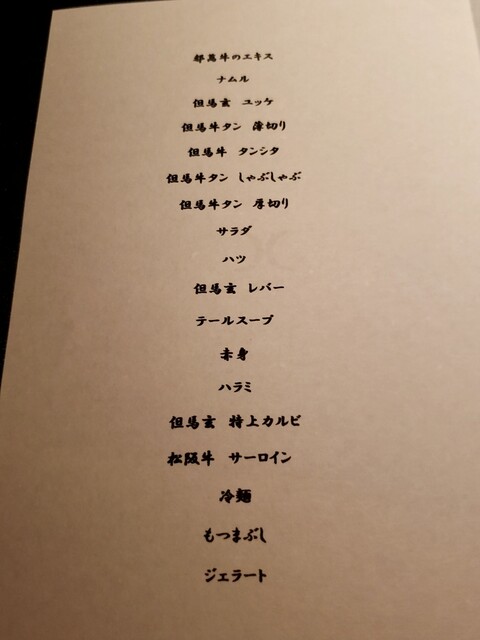 都萬牛のエキス
ナムル
但馬玄 ユッケ
但馬牛タン 薄切り
但馬牛 タンシタ
但馬牛タン しゃぶしゃぶ
但馬牛タン 厚切り
サラダ
ハツ
但馬玄 レバー
テールスープ
赤身
ハラミ
但馬玄 特上カルビ
松阪牛 サーロイン
冷麺
もつまぶし
ジェラート